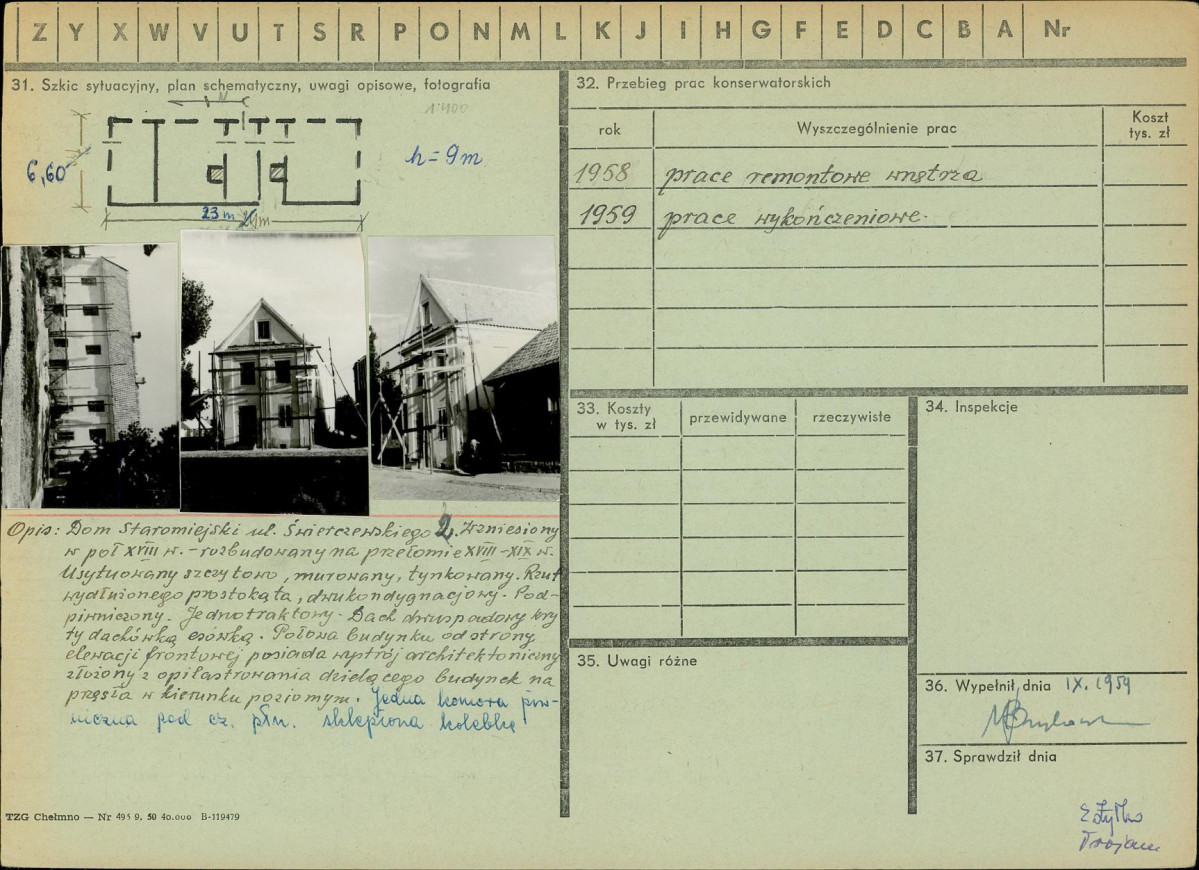 Z Y X W V U T S R P O N M L K J I H G F E D C B A Nr
31. Szkic sytuacyjny, plan schematyczny, uwagi opisowe, fotografia
1:400
N
6,60
h = 9 m
23 m
m
Opis: Dom Staromiejski ul. Świerczewskiego 2. Wzniesiony
w poł XVIII w. - rozbudowany na przełomie XVIII-XIX w.
Usytuowany szczytowo, murowany, tynkowany. Rzut
wydłużonego prostokąta, dwukondygnacjowy. Pod-
piwniczony. Jednotraktowy. Dach dwuspadowy kry
ty dachówką esówką. Połowa budynku od strony
elewacji frontowej posiada wystrój architektoniczny
złożony z opilastrowania dzielącego budynek na
przęsła w kierunku poziomym. Jedna komora piw-
niczna pod cz. płn. sklepiona kolebką
TZG Chełmno — Nr 495 9. 50 40.000 B-119479
32. Przebieg prac konserwatorskich
rok Wyszczególnienie prac Koszt tys. zł
1958 prace remontowe wnętrza
1959 prace wykończeniowe.
33. Koszty w tys. zł przewidywane rzeczywiste
34. Inspekcje
35. Uwagi różne
36. Wypełnił dnia IX. 1959
37. Sprawdził dnia